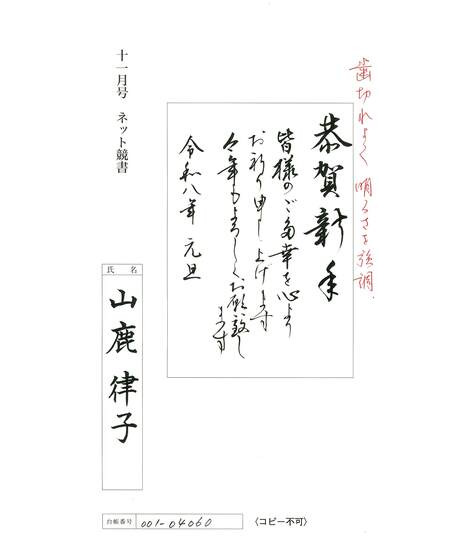 歯切れよく明るさを強調.
恭賀新年
皆様のご多幸を心より
お祈り申し上げます
今年もよろしくお願い致し
ます
令和八年 元旦
十一月号 ネット競書
氏名
山鹿律子
台帳番号 001-04060
〈コピー不可〉